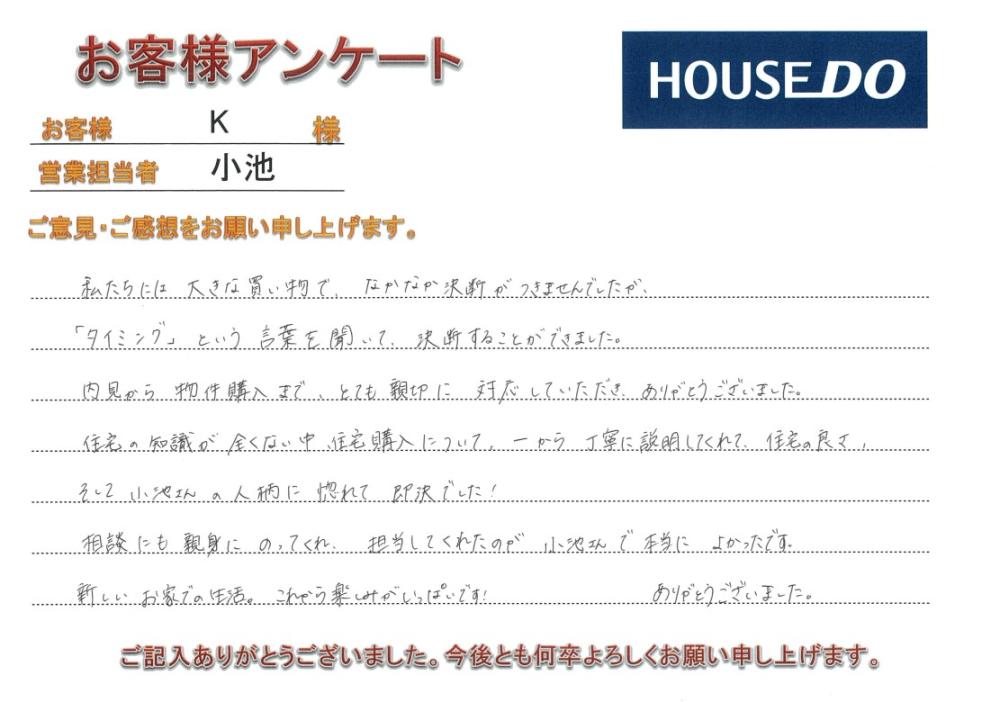 お客様アンケート
HOUSE DO
お客様 K 様
営業担当者 小池
ご意見・ご感想をお願い申し上げます。
私たちには 大きな買い物で、なかなか決断がつきませんでしたが、
「タイミング」という 言葉を聞いて、決断することができました。
内見から 物件購入まで、とても親切に 対応していただき、ありがとうございました。
住宅の知識が 全くない中、住宅購入について、一から 丁寧に説明してくれて、住宅の良さ、
そして 小池さんの人柄に 惚れて 即決でした!
相談にも親身に のってくれ、担当してくれたのが 小池さんで本当に よかったです。
新しい お家での生活。これから楽しみがいっぱいです! ありがとうございました。
ご記入ありがとうございました。今後とも何卒よろしくお願い申し上げます。